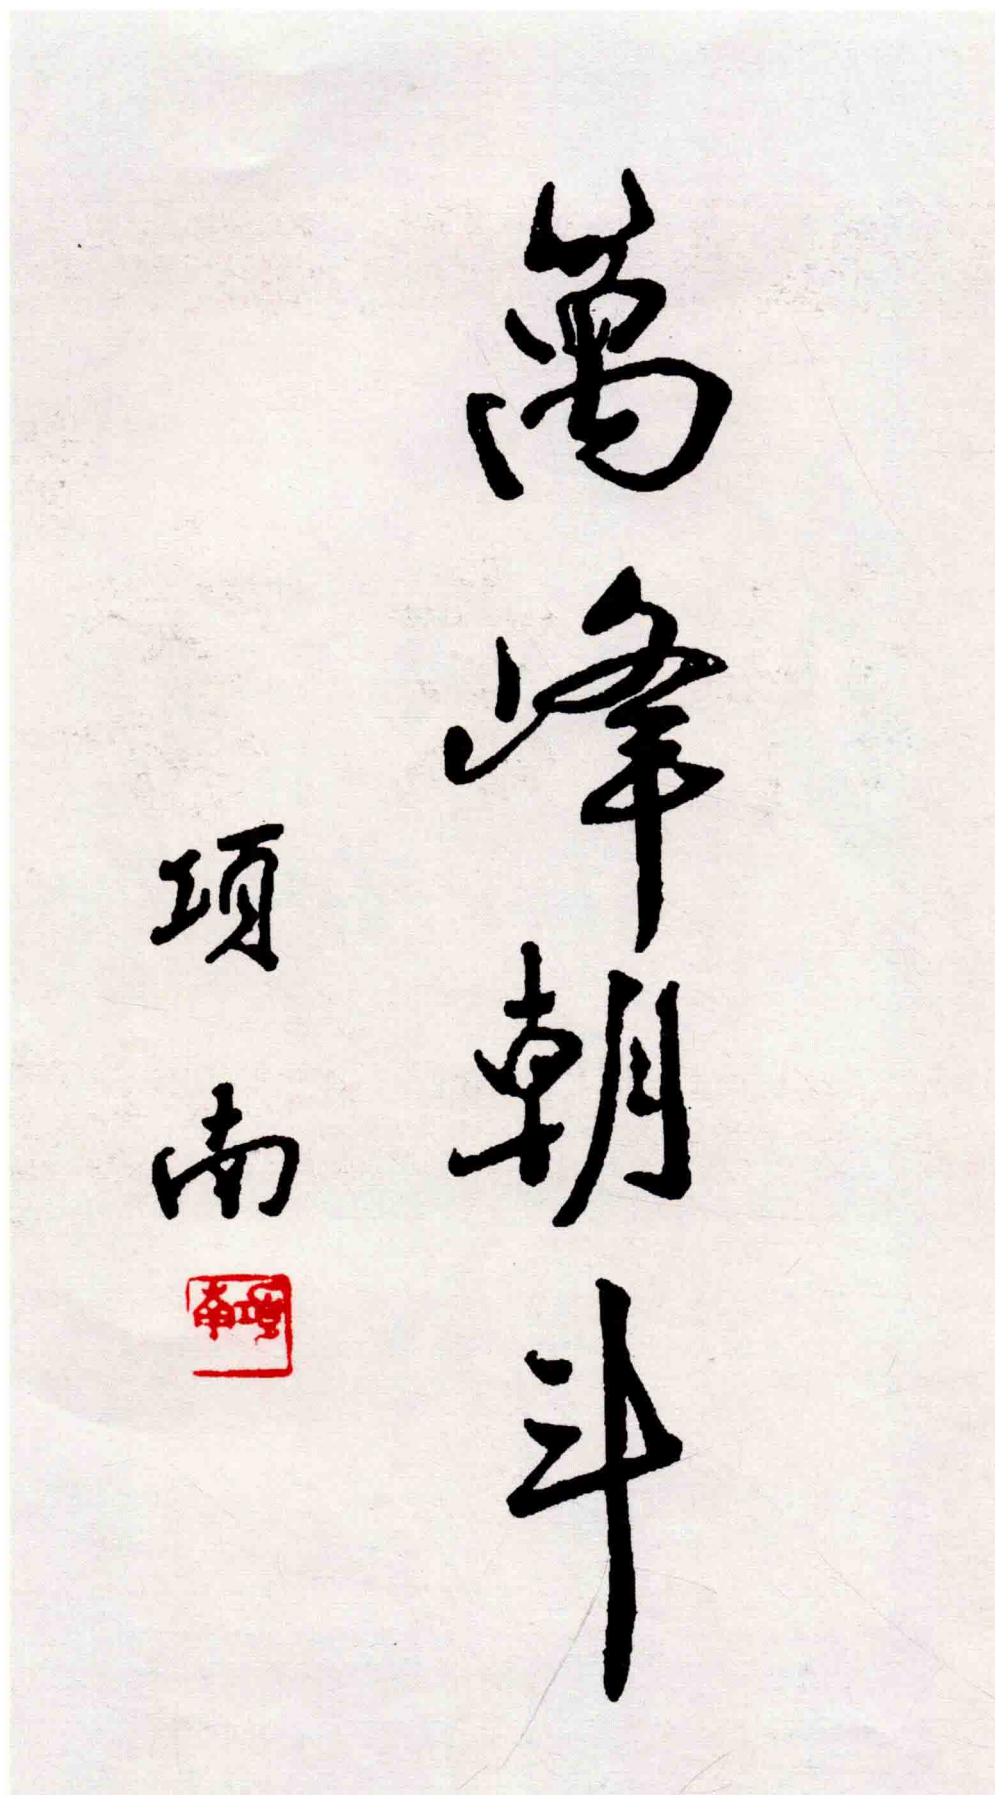 萬峰朝斗
項南
項南